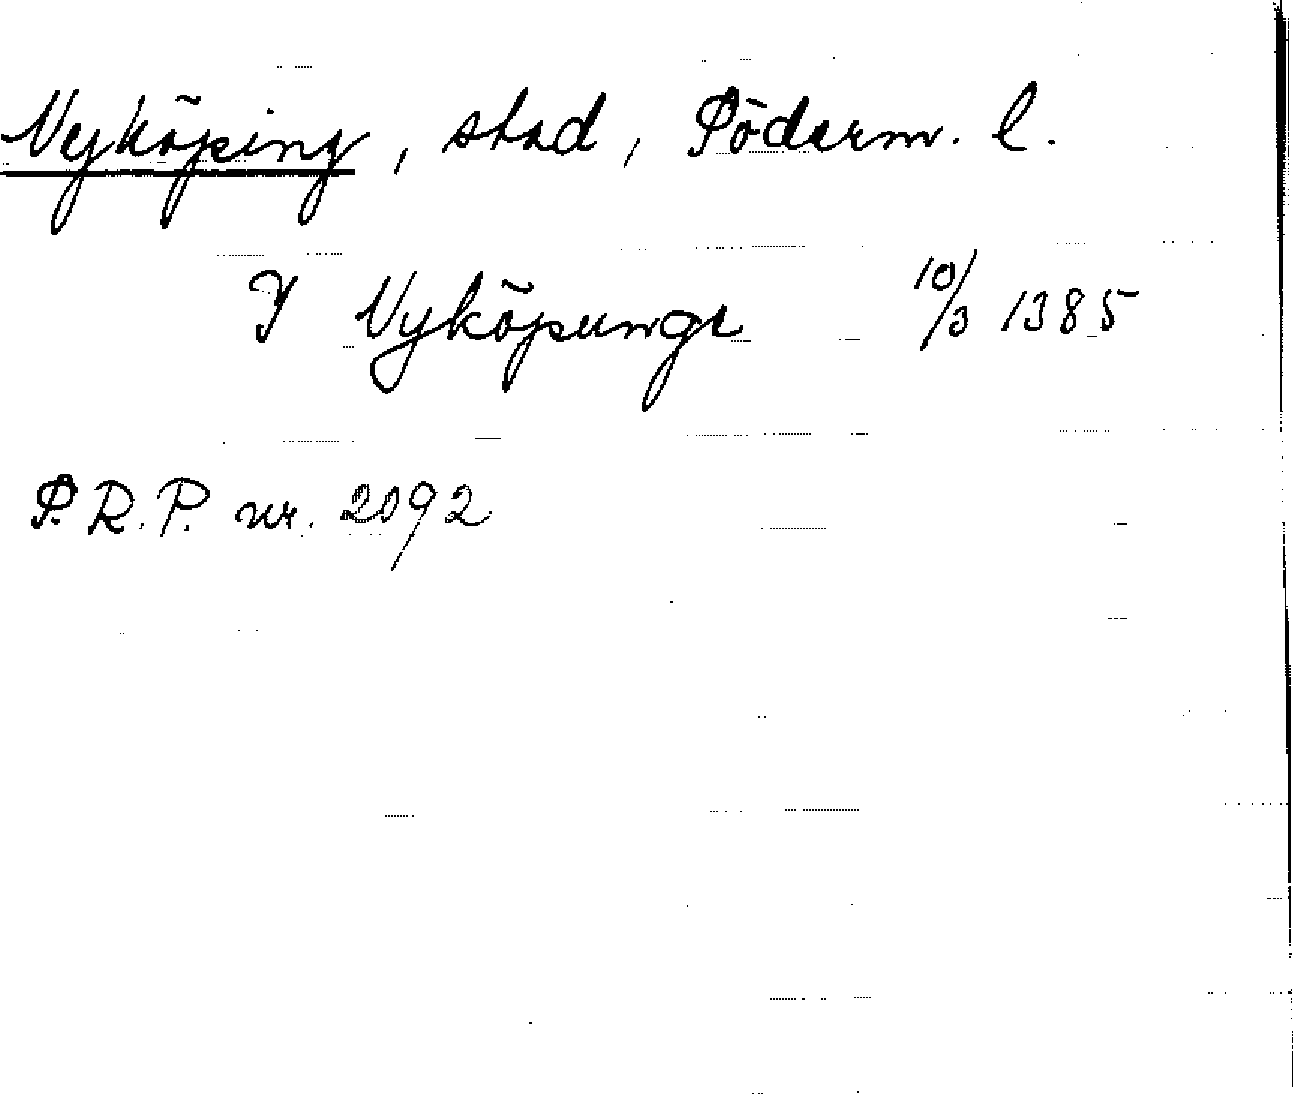 Nyköping, stad, Söderm. l.
I Nyköpunge 10/3 1385
S.R.P. nr. 2092